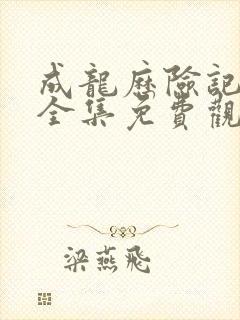 成龍歷險記
全集免費觀
梁燕飛